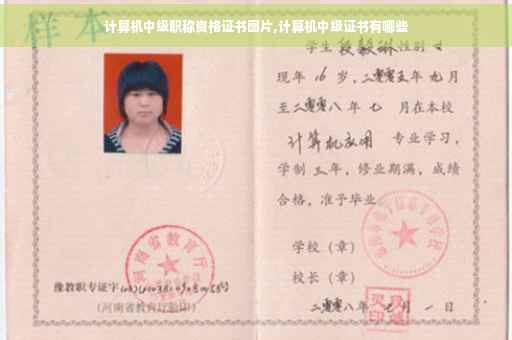 计算机中级职称资格证书图片,计算机中级证书有哪些
样本
学生段毅琳性别女
现年16岁,二零零五年九月
至二零零八年七月在本校
计算机应用专业学习,
学制三年,修业期满,成绩
合格,准予毕业
学校(章)
校长(章)
二零零八年 月一日
河南省教育厅
豫教职专证字
(河南省教育厅验印)